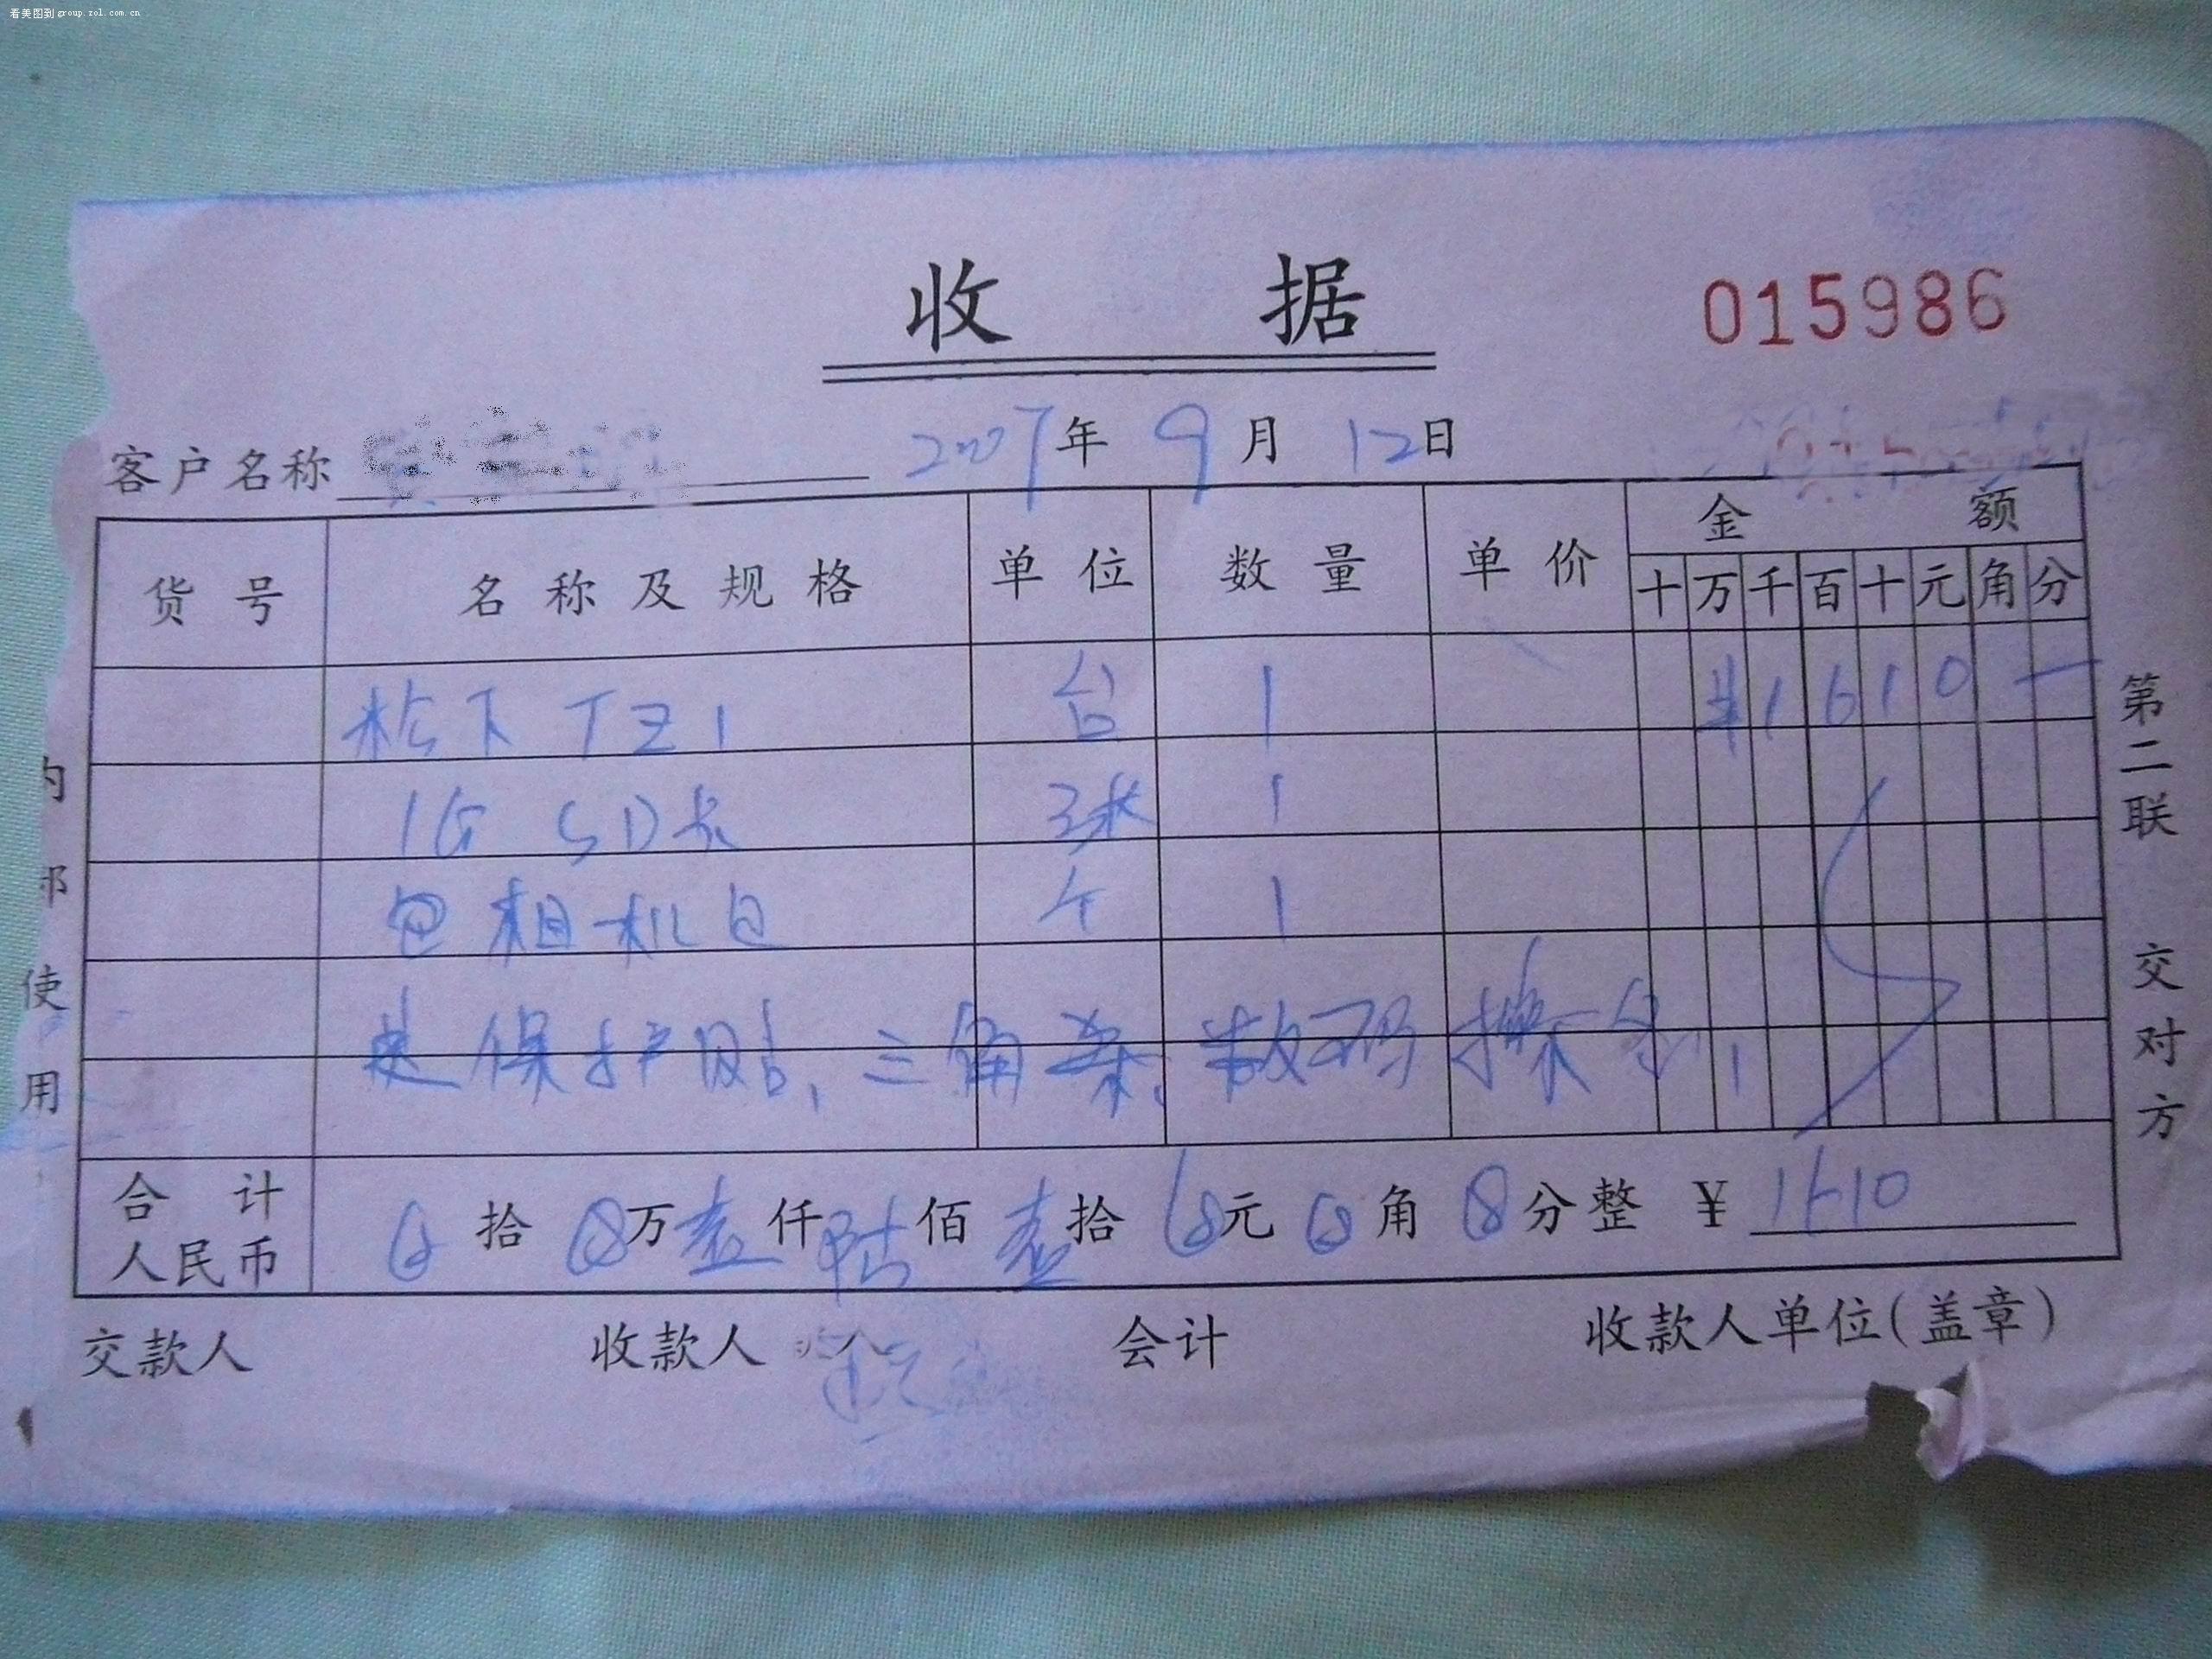 看美图到 group.zol.com.cn
收 据
015986
客户名称 2007年 9月 12日
货号 名称及规格 单位 数量 单价 金额
十 万 千 百 十 元 角 分
松下 TZ1 台 1 ¥1610 —
1G SD卡 张 1
相机包 个 1
送保护贴,三角架,数码
合计人民币 ⓧ拾 ⓧ万 壹仟 陆佰 壹拾 ⓧ元 ⓧ角 ⓧ分整 ¥1610
交款人 收款人 会计 收款人单位(盖章)
内部使用
第二联 交对方